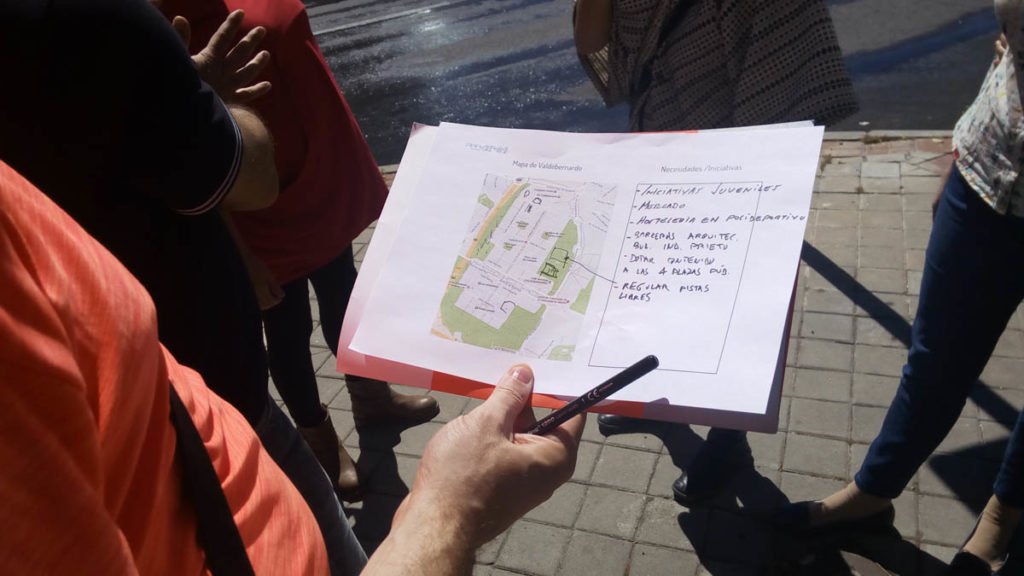 Mapa de Valdebernardo
Necesidades /Iniciativas
- INICIATIVAS JUVENILES
- MERCADO
- HOSTELERIA EN POLIDEPORTIVO
- BARRERAS ARQUITEC.
BUL. IND. PRIETO
- DOTAR CONTENIDO
A LAS 4 PLAZAS PÚB.
- REGULAR PISTAS
LIBRES
CE